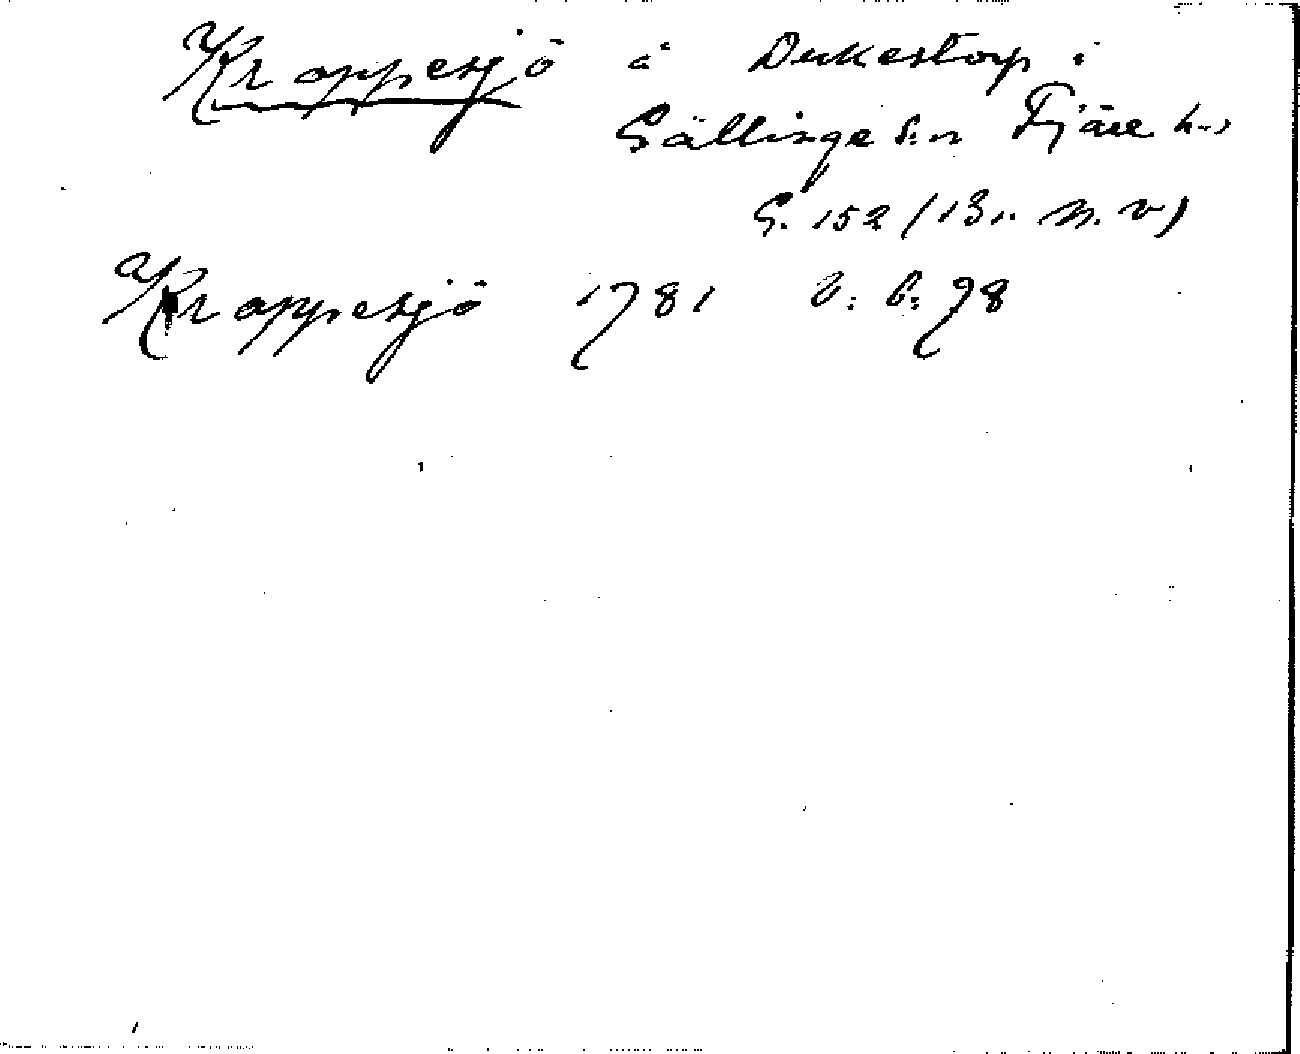 Krappesjö å Dukestorp i
Gällinge s:n Fjäre h.
G. 152 / 13 .. n. v)
Krappesjö 1781 v. b: 78